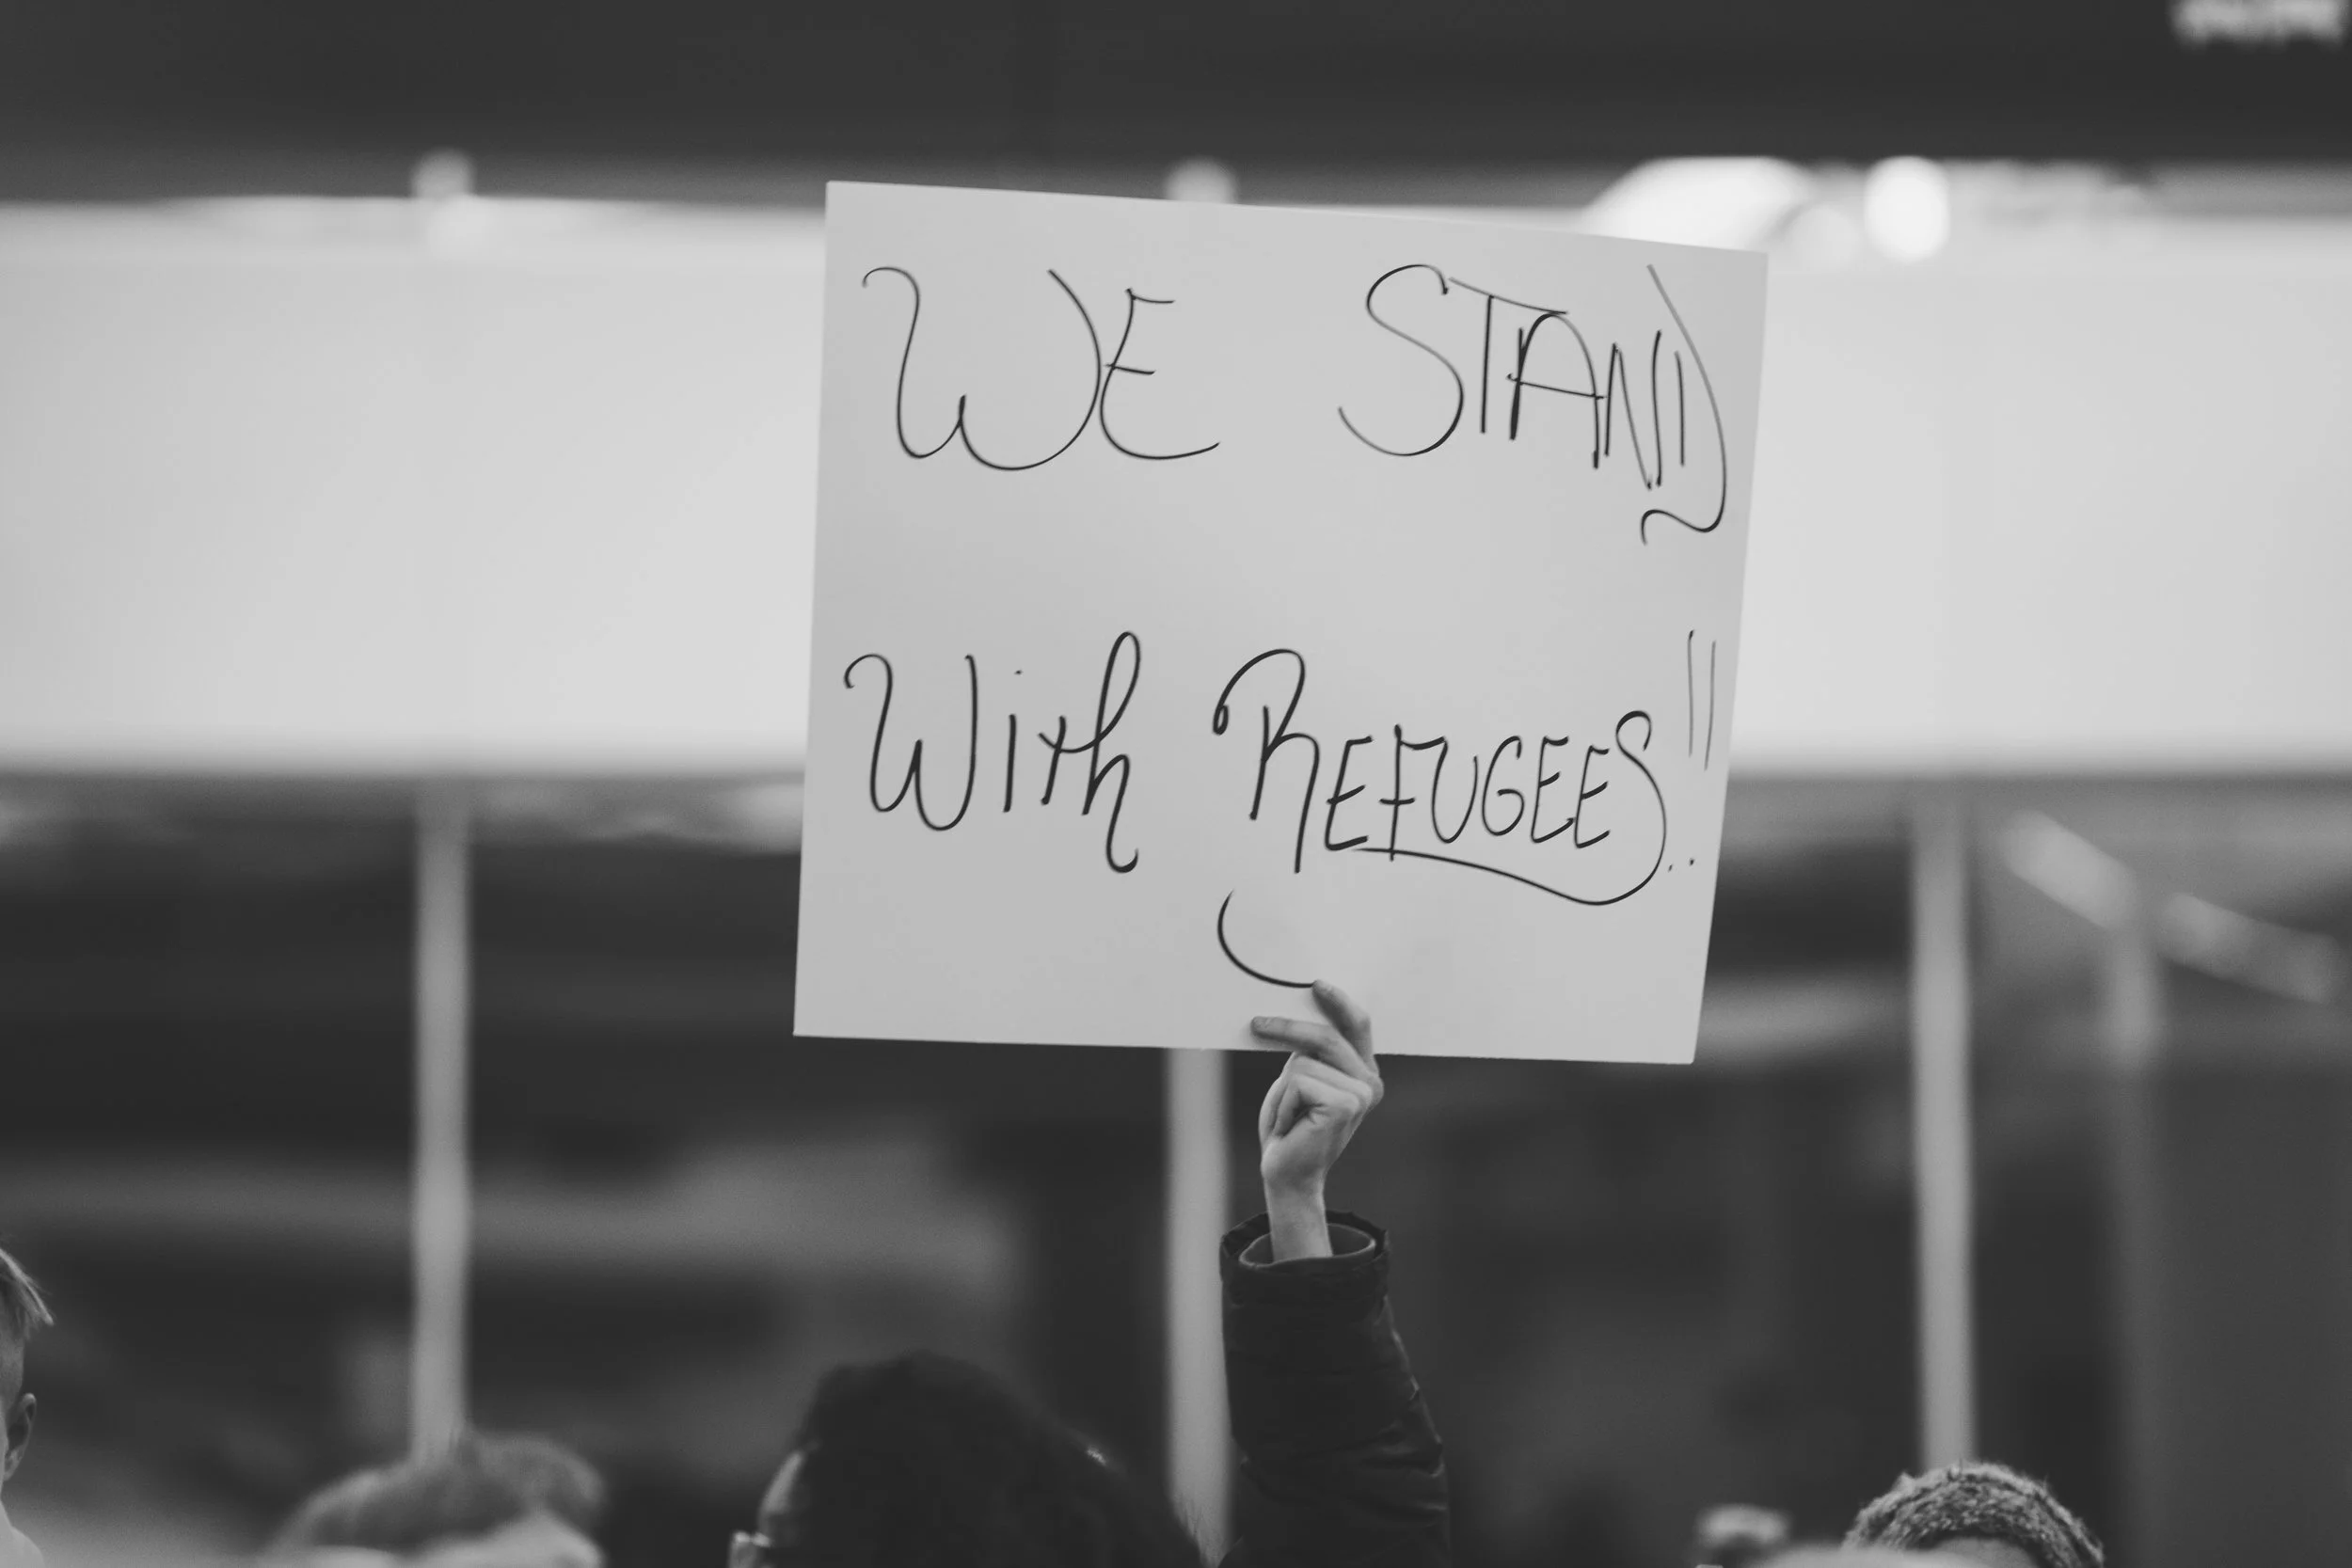 WE STAND
With REFUGEES!!